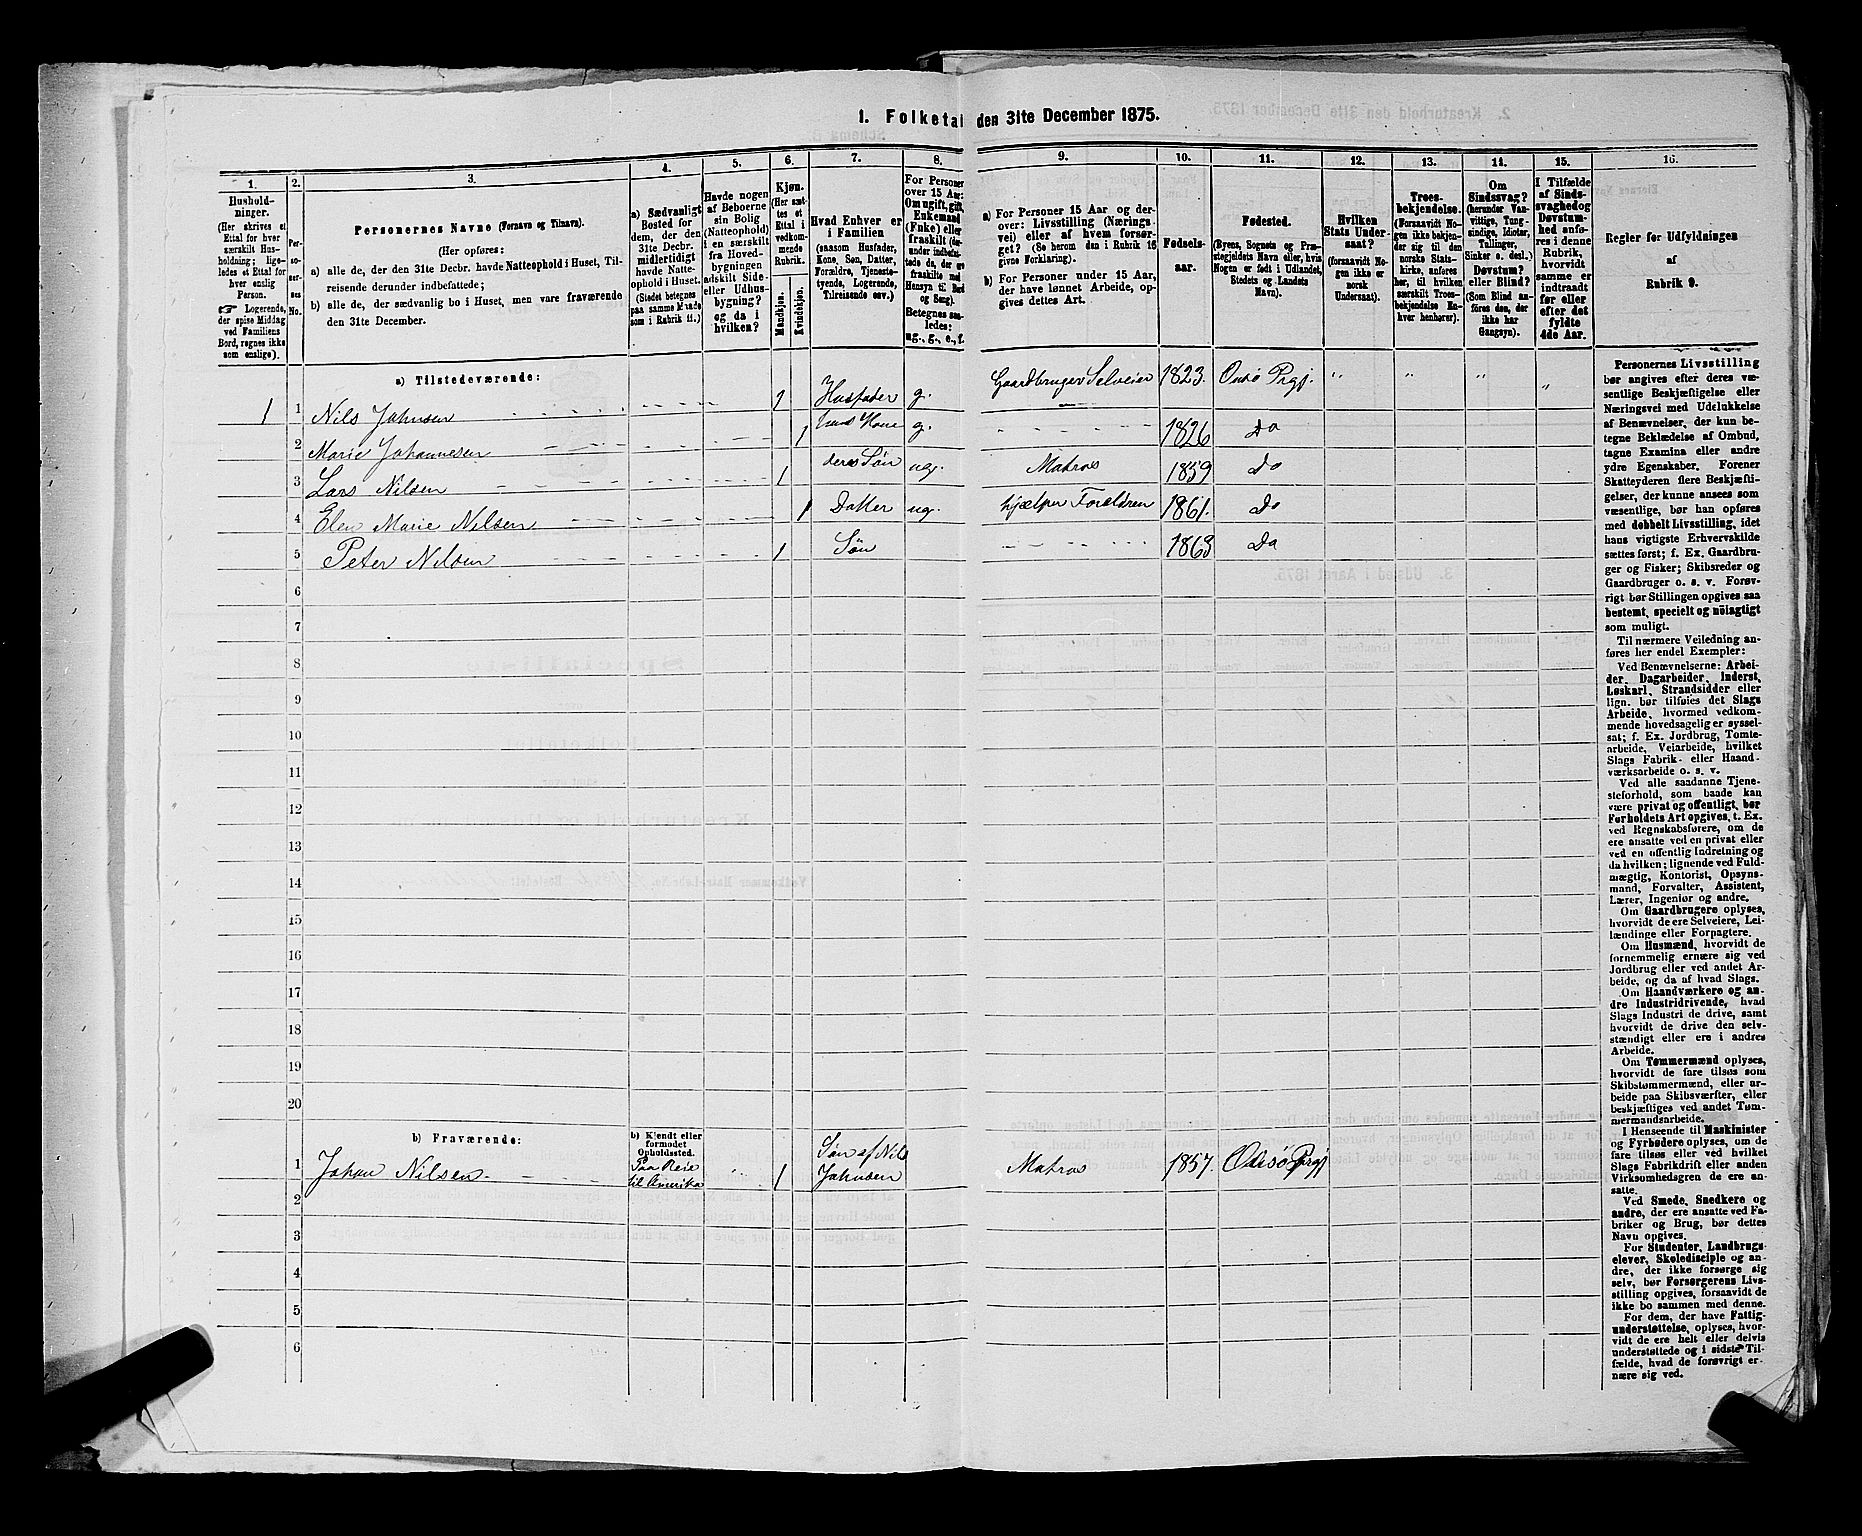 1. Folketal den 31te December 1875.
1. 2. 3. 4. 5. 6. 7. 8. 9. 10. 11. 12. 13. 14. 15. 16.
Husholdninger.
(Her skrives et
Ettal for hver
særskilt Husholdning;
ligeledes et Ettal for
hver enslig
Person.
☞ Logerende,
der spise Middag
ved Familiens
Bord, regnes ikke
som enslige).
Personernes No.
Personernes Navne (Fornavn og Tilnavn).
(Her opføres:
a) alle de, der den 31te Decbr. havde Natteophold i Huset, Tilreisende derunder indbefattede;
b) alle de, der sædvanlig bo i Huset, men vare fraværende
den 31te December.
a) Sædvanligt
Bosted for
dem, der den
31te Decbr.
midlertidigt
havde Natteophold i Huset.
(Stedet betegnes
paa samme Maade
som i Rubrik 11.)
Havde nogen
af Beboerne
sin Bolig
(Natteophold)
i en særskilt
fra Hovedbygningen
adskilt Side-
eller Udhusbygning?
og da i
hvilken?
Kjøn.
(Her sættes et
Ettal i
vedkommende
Rubrik.
Mandkjøn.
Kvindekjøn.
Hvad Enhver er
i Familien
(saasom Husfader,
Kone, Søn, Datter,
Forældre, Tjenestetyende, Logerende,
Tilreisende osv.)
For Personer
over 15 Aar:
Om ugift, gift,
Enkemand
(Enke) eller
fraskilt
Betegnes saaledes:
ug., g., e., f.
a) For Personer 15 Aar og derover: Livsstilling (Næringsvei) eller af hvem forsørget? (Se herom den i Rubrik 16
givne Forklaring).
b) For Personer under 15 Aar,
der have lønnet Arbeide, opgives dettes Art.
Fødselsaar.
Fødested.
(Byens, Sognets og Præstegjeldets Navn eller, hvis
Nogen er født i Udlandet,
Stedets og Landets
Navn).
Hvilken
Stats Undersaat?
(forsaavidt Nogen ikke er
norsk
Undersaat).
Troesbekjendelse.
(Forsaavidt Nogen ikke bekjender sig til den
norske Statskirke, anføres
her, til hvilken
særskilt Troesbekjendelse Enhver henhører).
Om
Sindssvag?
(herunder Vanvittige, Tungsindige, Idioter,
Tullinger,
Sinker o. desl.)
Døvstum?
eller Blind?
(Som Blind anføres den, der
ikke har
Gangsyn).
I Tilfælde
af Sindssvaghed og
Døvstumhed anføres i denne
Rubrik,
hvorvidt
samme er
indtraadt
før eller
efter det
fyldte
4de Aar.
Regler for Udfyldningen
af
Rubrik 9.
a) Tilstedeværende:
1 1 Nils Johnsen 1 Husfader g. Gaardbruger Selveier 1823. Onsø Prgj. " " " "
2 Marie Johannesen 1 hans Kone g. 1826 Do
3 Lars Nilsen 1 deres Søn ug. Matros 1859 Do
4 Elen Marie Nilsen 1 Datter ug. hjælper Foreldren 1861. Do
5 Peter Nilsen 1 Søn 1863 Do
6
7
8
9
10
11
12
13
14
15
16
17
18
19
20
b) Fraværende:
b) Kjendt eller
formodet
Opholdssted.
1 Johan Nilsen Paa Reise til Amerika 1 Søn af Nils Johnsen Matros 1857. Onsø Prgj
2
3
4
5
6
Personernes Livsstilling
bør angives efter deres væsentlige Beskjæftigelse eller
Næringsvei med Udelukkelse
af Benævnelser, der kun betegne Beklædelse af Ombud,
tagne Examina eller andre
ydre Egenskaber. Forener
Skatteyderen flere Beskjæftigelser, der kunne ansees som
væsentlige, bør han opføres
med dobbelt Livsstilling, idet
hans vigtigste Erhvervskilde
sættes først; f. Ex. Gaardbruger og Fisker; Skibsreder og
Gaardbruger o. s. v. Forøvrigt bør Stillingen opgives saa
bestemt, specielt og nöiagtigt
som muligt.
Til nærmere Veiledning anføres her endel Exempler:
Ved Benævnelserne: Arbeider, Dagarbeider, Inderst,
Løskarl, Strandsidder eller
lign. bør tilføies det Slags
Arbeide, hvormed vedkommende hovedsagelig er sysselsat; f. Ex. Jordbrug, Tomtearbeide, Veiarbeide, hvilket
Slags Fabrik- eller Haandværksarbeide o. s. v.
Ved alle saadanne Tjenesteforhold, som baade kan
være privat og offentligt, bør
Forholdets Art opgives, t. Ex.
ved Regnskabsførere, om de
ere ansatte ved en privat eller
ved en offentlig Indretning og
da hvilken; lignende ved Fuldmægtig, Kontorist, Opsynsmand, Forvalter, Assistent,
Lærer, Ingeniør og andre.
Om Gaardbrugere oplyses,
hvorvidt de ere Selveiere, Leilændinge eller Forpagtere.
Om Husmænd, hvorvidt de
fornemmelig ernære sig ved
Jordbrug eller ved andet Arbeide, og da af hvad Slags.
Om Haandværkere og andre Industridrivende, hvad
Slags Industri de drive, samt
hvorvidt de drive den selvstændigt eller ere i andres
Arbeide.
Om Tømmermænd oplyses,
hvorvidt de fare tilsøs som
Skibstømmermænd, eller arbeide paa Skibsværfter, eller
beskjæftiges ved andet Tømmermandsarbeide.
I Henseende til Maskinister
og Fyrbødere oplyses, om de
fare tilsøs eller ved hvilket
Slags Fabrikdrift eller anden
Virksomhedsgren de ere ansatte.
Ved Smede, Snedkere og
andre, der ere ansatte ved Fabriker og Brug, bør dettes
Navn opgives.
For Studenter, Landbrugselever, Skoledisciple og andre, der ikke forsørge sig
selv, bør Forsørgerens Livsstilling opgives, forsaavidt de
ikke bo sammen med denne.
For dem, der have Fattigunderstøttelse, oplyses, hvorvidt de ere helt eller delvis
understøttede og i sidste Tilfælde, hvad de forøvrigt ernære sig ved.